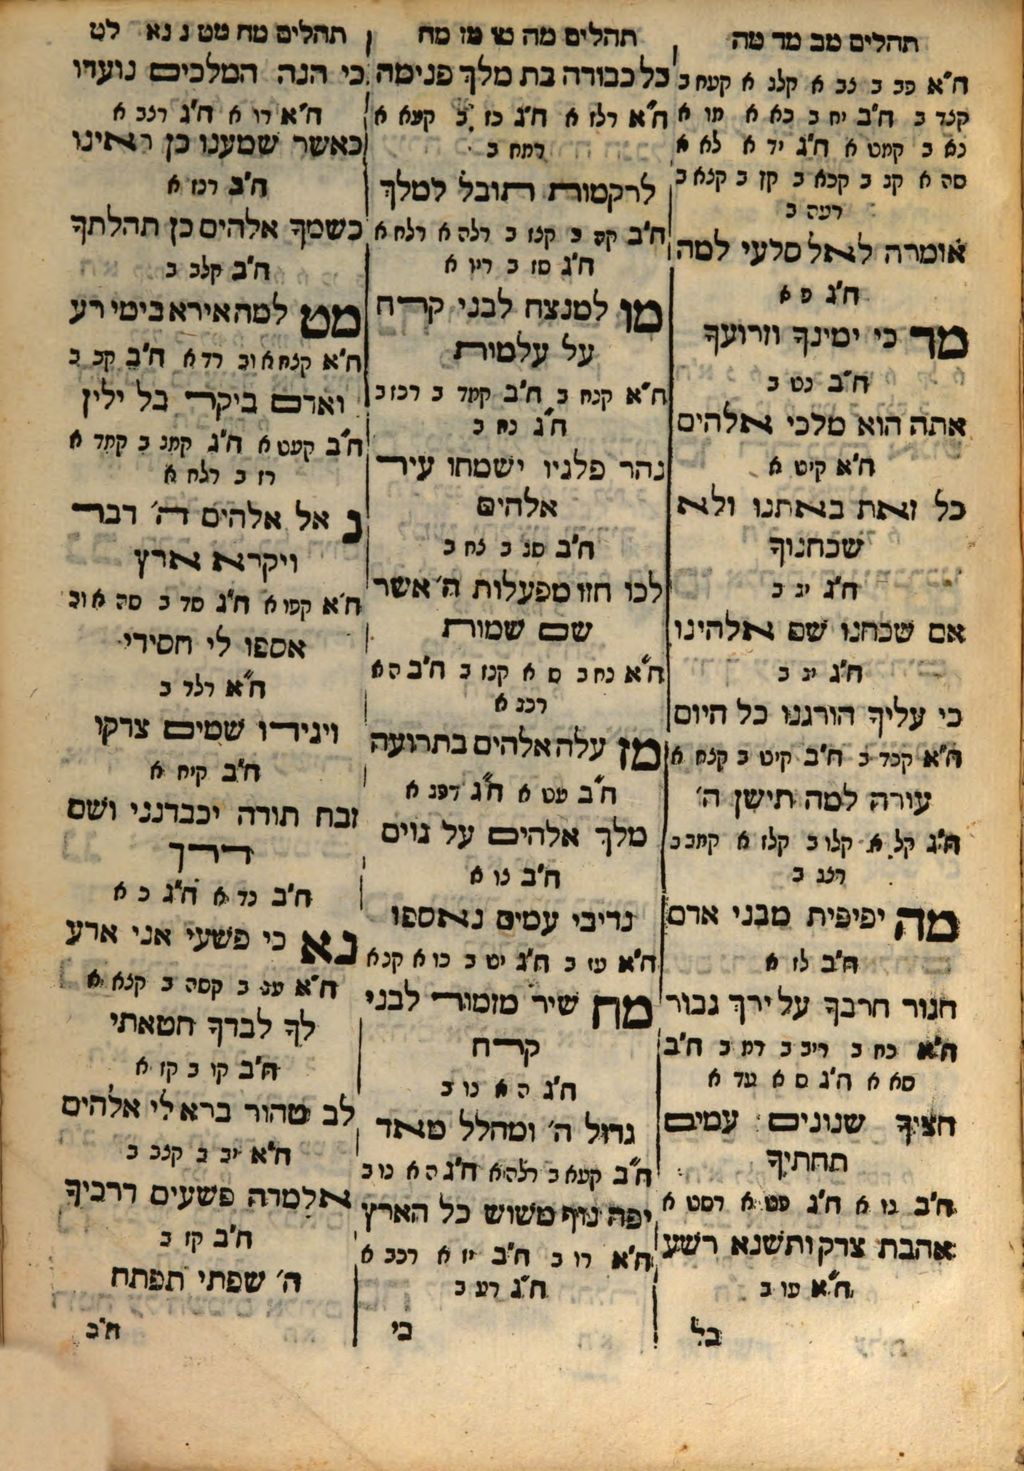 תהלים מב מד מה
ח"א פב ב נב א קלג א קעח ב
קנד ב ח"ב יח ב כא א מו א
נא ב קמט א ח"ג יד א לא א
סה א קנ ב קכא ב קן ב קנא ב
רעה ב
אומרה לאל סלעי למה
ח"ג פ א
מד כי ימינך וזרועך
ח"ב נט ב
אתה הוא מלכי אלהים
ח"א קיט א
כל זאת באתנו ולא
שכחנוך
ח"ג ינ ב
אם שכחנו שם אלהינו
ח"ג ינ ב
כי עליך הורגנו כל היום
ח"א קכד ב ח"ב קיט ב קנח א
עורה למה תישן ה'
ח"ג קל א קלו ב קלז א קמב ב
רננ ב
מה יפיפית מבני אדם
ח"ב לז א
חגור חרבך על ירך גבור
ח"א כח ב ריב ב רמ ב ח"ב
סא א ח"ג ס א עד א
חציך שנונים עמים
תחתיך
ח"ב נו א ח"ג פט א רסט א
אהבת צדק ותשנא רשע
ח"א עו ב
כל
תהלים מה מו מז מח
כל כבודה בת מלך פנימה
ח"א רלז א ח"ג כז ב קעא א
רמח ב
לרקמות תובל למלך
ח"ב קפ ב קנז ב רלה א רלח א
ח"ג סז ב ריו א
מו למנצח לבני קרח
על עלמות
ח"א קנח ב ח"ב קמד ב רכז ב
ח"ג נח ב
נהר פלגיו ישמחו עיר
אלהים
ח"ב סג ב נח ב
לכו חזו מפעלות ה' אשר
שם שמות
ח"א נח ב ס א קנז ב ח"ב ה א
רכג א
מז עלה אלהים בתרועה
ח"ב עט א ח"ג רפג א
מלך אלהים על גוים
ח"ב נו א
נדיבי עמים נאספו
ח"א עז ב ח"ג יט ב כו א קנא
מח שיר מזמור לבני
קרח
ח"ג ה א נו ב
גדול ה' ומהלל מאד
ח"ב קעא ב רלה א ח"ג ה א נו ב
יפה נוף משוש כל הארץ
ח"א רו ב ח"ב יז א רכב א
ח"ג רע ב
כי
תהלים מח מט נ נא לט
כי הנה המלכים נועדו
ח"א רו א ח"ג רנב א
כאשר שמענו כן ראינו
ח"ב רמ א
כשמך אלהים כן תהלתך
ח"ב קלב ב
מט למה אירא בימי רע
ח"א קנח א וב רד א ח"ב קכ ב
ואדם ביקר בל ילין
ח"ב קעט א ח"ג קמג ב קמד א
רז ב רלח א
נ אל אלהים ה' דבר
ויקרא ארץ
ח"א קפו א ח"ג סד ב סה א וב
אספו לי חסידי
ח"א רלד ב
ויגידו שמים צדקו
ח"ב קיח א
זבח תודה יכבדנני ושם
דרך
ח"ב כד א ח"ג כ א
נא כי פשעי אני ארע
ח"א עג ב קסה ב קנא א
לך לבדך חטאתי
ח"ב קו ב קז א
לב טהור ברא לי אלהים
ח"א יב ב קככ ב
אלמדה פשעים דרכיך
ח"ב קו ב
ה' שפתי תפתח
ח"ב